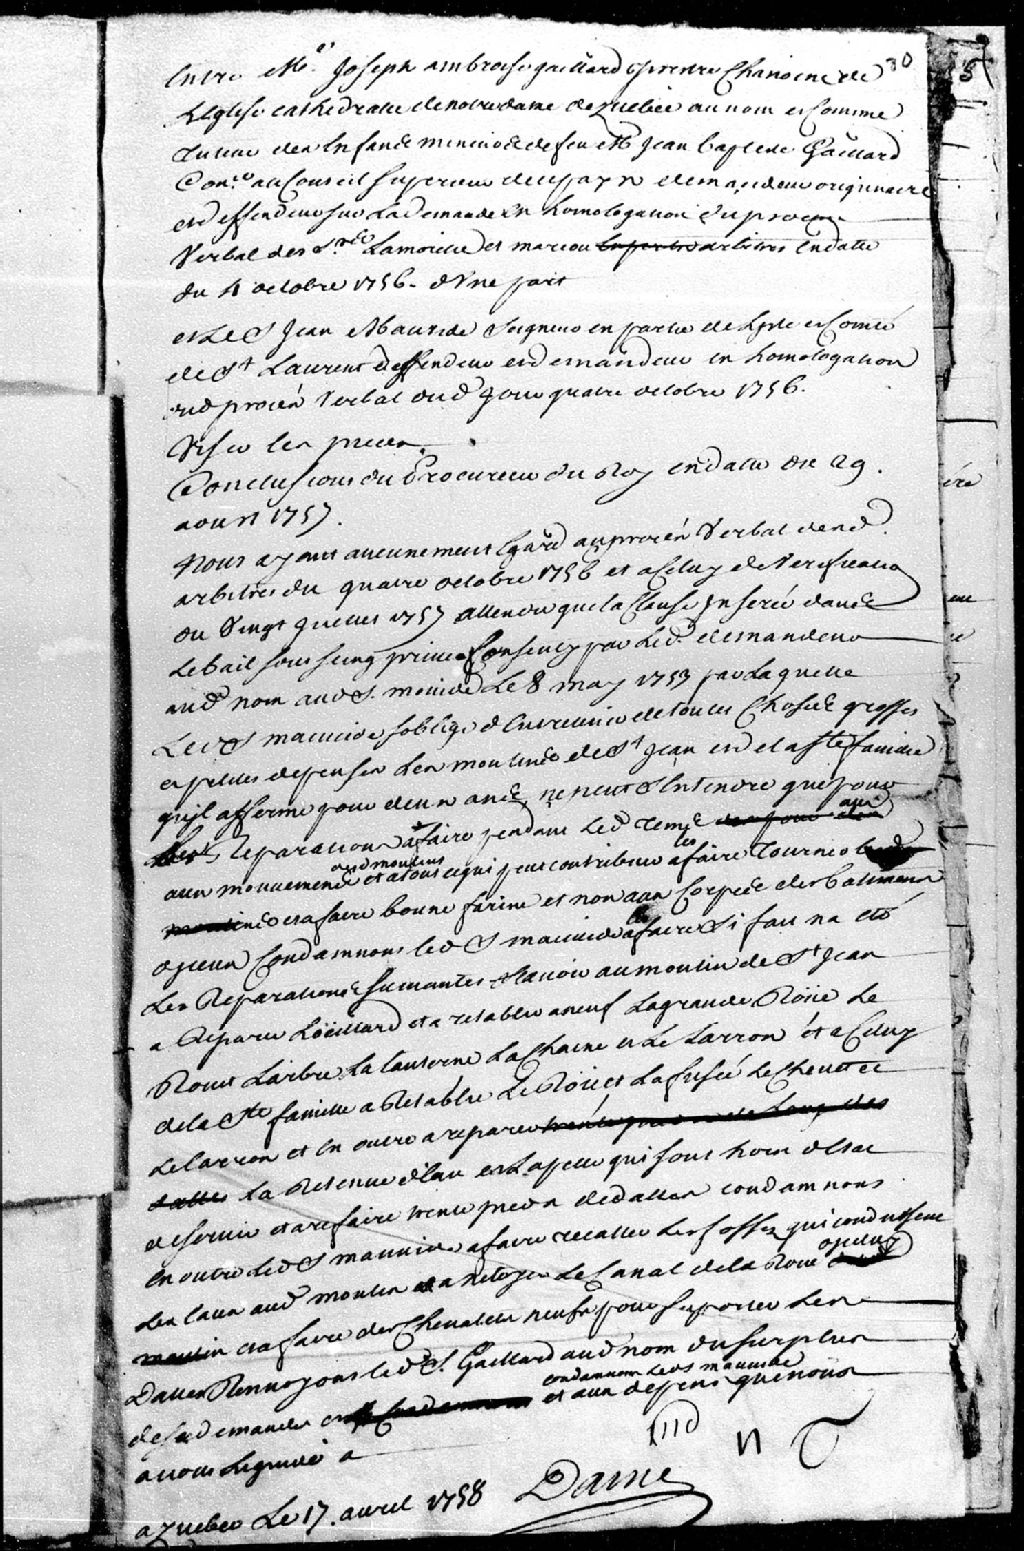 Entre Me. Joseph ambroise gaillard prestre Chanoine de 30
LEglise cathedralle de notre dame de quebec au nom et Comme
tuteur des Enfans mineurs de feu Me Jean baptiste Gaillard
Coner. au Conseil Superieur de ce payis demandeur originaire
et deffendeur sur La demande En homologation du proces
Verbal des Srs. Lamoille et marcou arbitres En datte
du 4 octobre 1756. d'Une part
et Le S Jean Mauvide Seigneur en partie de Lisle et Comté
de St Laurent deffendeur et demandeur en homologation
dud procès Verbal dud jour quatre octobre 1756.
Vû les pieces.
Conclusions du Procureur du Roy en datte du 29.
aoust 1757.
Nous ayant aucunement Egard au procès Verbal desd.
arbitres du quatre octobre 1756 et a Celuy de Verification
du Vingt Juillet 1757 attendu que la Clause Inserée dans
Le bail sous seing privé Consenty par Led. demandeur
aud nom aud S. mauvide Le 8 may 1753 par Laquelle
Led S mauvide s'oblige d'Entretenir de toutes Choses grosses
et petites depenses Les moulins de St Jean et de la Ste famille
qu'jl afferme pour deux ans, ne peut S'Entendre que pour
Les Reparations a faire pendant Led. tems aux
aux mouvemens ausd moulins et a tout ce qui peut contribuer a les faire Tourner
et a faire bonne farine et non aux Corps des batimens
Condamnons led S mauvide a faire Si fait na eté
Les Reparations Suivantes Scavoir au moulin de St Jean
a Reparer L'oëillard et a retablir a neuf La grande Roüe Le
Rouet L'arbre La lanterne La Chaine et Le Larron et a Celuy
de la Ste famille a Retablir Le Roüet La fusée Le Chevalet
Le larron et En outre a reparer
La Retenue d'Eau et La pelle qui sont hors d'Etat
de servir et a refaire trente pieds de dalles condamnons
en outre Led S mauvide a faire recaller Les fossez qui conduisent
Les Eaux aud moulin et a netoyer Le Canal de la Roüe
et a faire des Chevalets neufs pour Suporter Les
Dalles Renvoyons led. S. Gaillard aud nom du surplus
de ses demandes et condamnons Led S mauvide et aux depens que nous
avons Liquidé a
a quebec Le 17. avril 1758 Daine